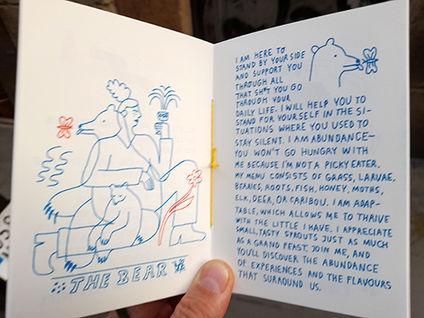 THE BEAR
I AM HERE TO
STAND BY YOUR SIDE
AND SUPPORT YOU
THROUGH ALL
THAT SH*T YOU GO
THROUGH YOUR
DAILY LIFE. I WILL HELP YOU TO
STAND FOR YOURSELF IN THE SI-
TUATIONS WHERE YOU USED TO
STAY SILENT. I AM ABUNDANCE-
YOU WON'T GO HUNGRY WITH
ME BECAUSE I'M NOT A PICKY EATER.
MY MENU CONSISTS OF GRASS, LARVAE,
BERRIES, ROOTS, FISH, HONEY, MOTHS,
ELK, DEER, OR CARIBOU. I AM ADAP-
TABLE, WHICH ALLOWS ME TO THRIVE
WITH THE LITTLE I HAVE. I APPRECIATE
SMALL, TASTY SPROUTS JUST AS MUCH
AS A GRAND FEAST. JOIN ME, AND
YOU'LL DISCOVER THE ABUNDANCE
OF EXPERIENCES AND THE FLAVOURS
THAT SURROUND US.